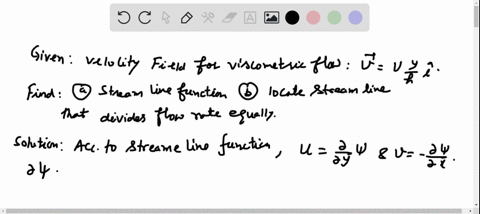 Given: velocity Field for viscometric flow: V⃗ = U y/h î.
Find: ⓐ Stream line function ⓑ locate stream line
that divides flow rate equally.
Solution: Acc. to streame line function, u = ∂/∂y ψ & v = -∂ψ/∂x.
∂ψ.